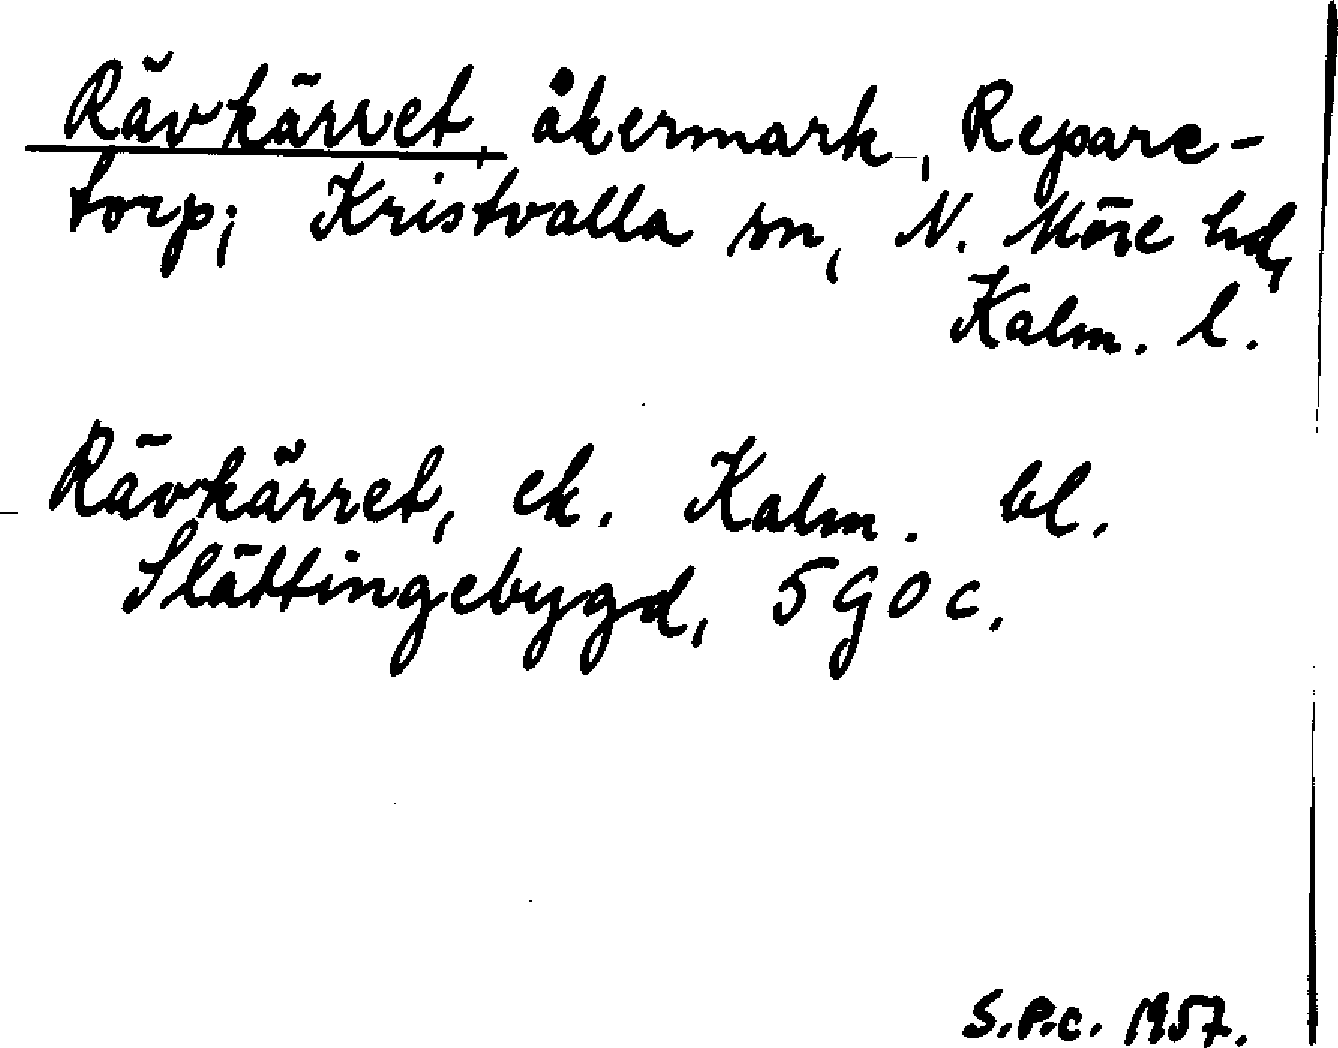 Rävkärret, åkermark, Repare-
torp; Kristvalla sn, N. Möre hd,
Kalm. l.
Rävkärret, ek. Kalm. bl.
Slättingebygd, 5 G 0 c.
S.P.c. 1957.